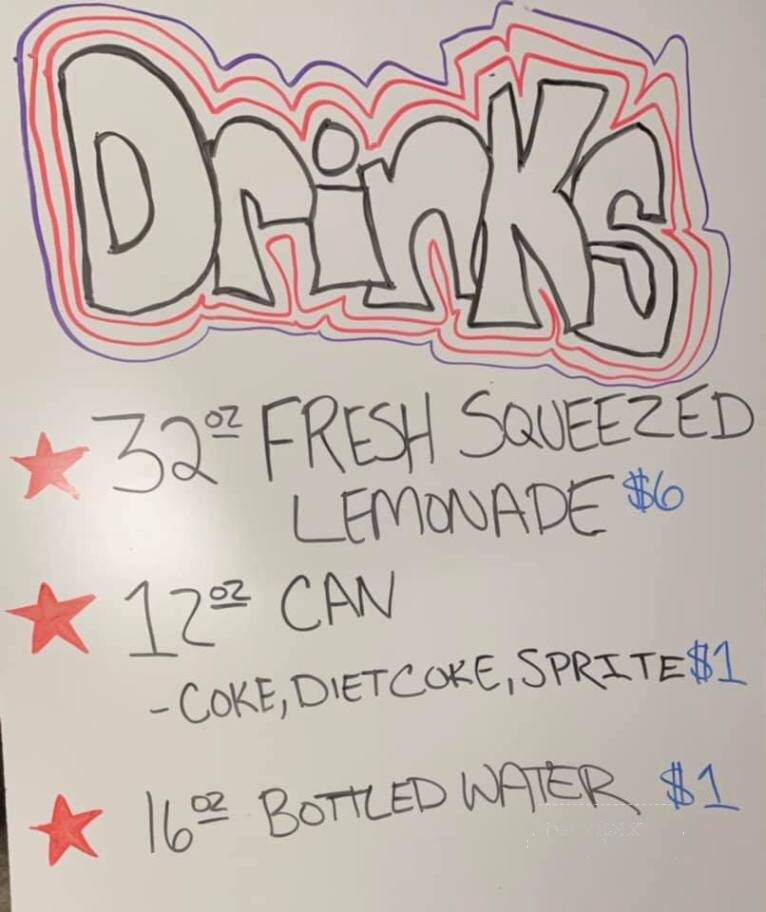 Drinks
32oz FRESH SQUEEZED
LEMONADE $6
12oz CAN
-COKE, DIET COKE, SPRITE $1
16oz BOTTLED WATER $1